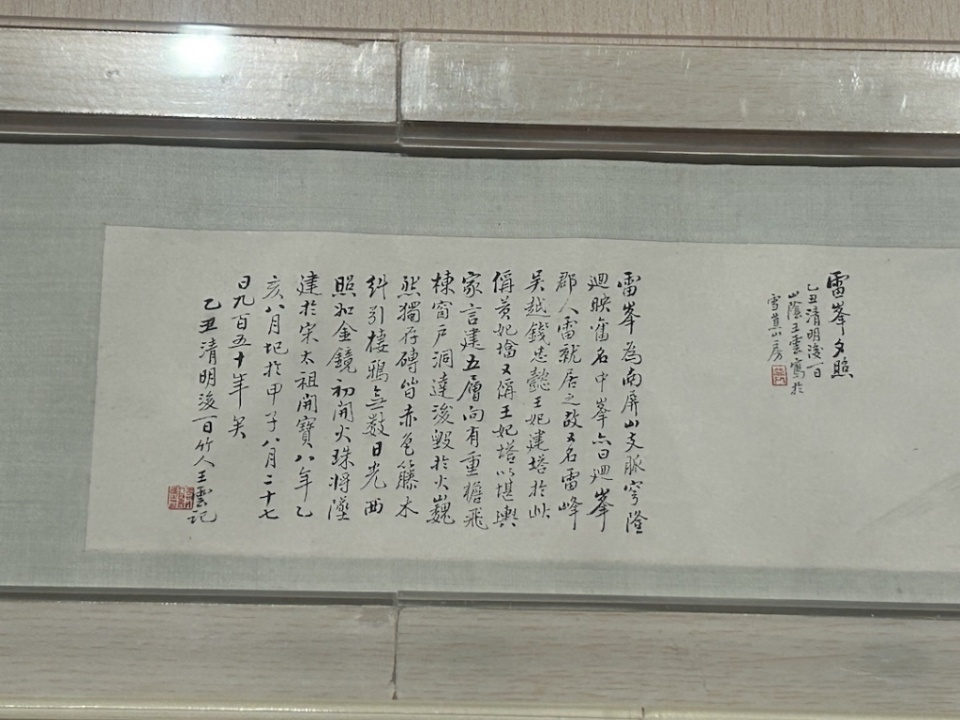 雷峯夕照
乙丑清明後一日
山陰王雲寫於
雪萁山房
雷峯為南屏山支脈穹窿
迴映舊名中峯亦曰迴峯
郡人雷就居之故又名雷峰
吳越錢忠懿王妃建塔於此
俗稱黃妃塔又偁王妃塔以堪輿
家言建五層向有重檐飛
棟窗戶洞達後毀於火巍
然獨存磚皆赤色籐木
糾引棲鴉無數日光西
照如金鏡初開火珠將墜
建於宋太祖開寶八年乙
亥八月圮於甲子八月二十七
日九百五十年矣
乙丑清明後一日竹人王雲記